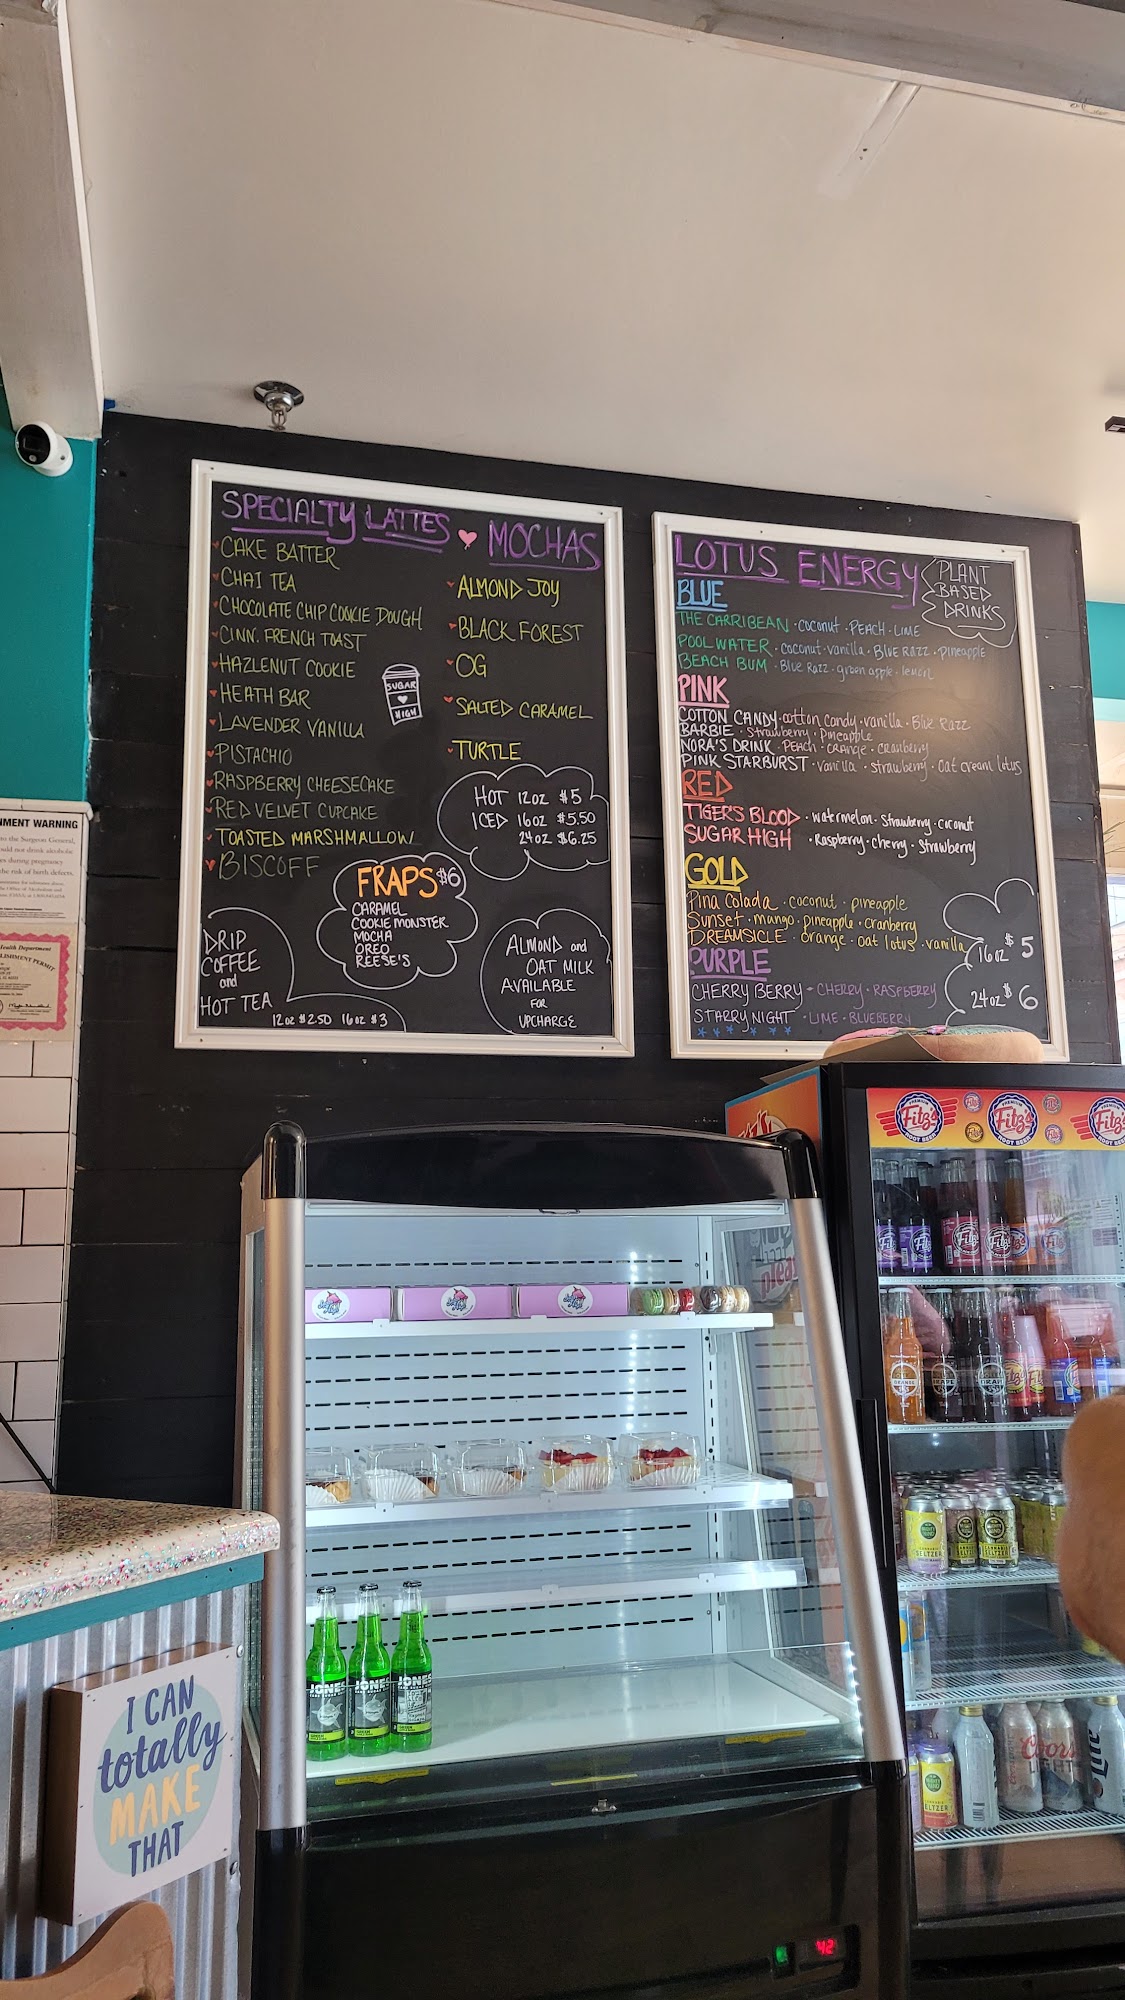 SPECIALTY LATTES
MOCHAS
CAKE BATTER
CHAI TEA
CHOCOLATE CHIP COOKIE DOUGH
CINN. FRENCH TOAST
HAZLENUT COOKIE
HEATH BAR
LAVENDER VANILLA
PISTACHIO
RASPBERRY CHEESECAKE
RED VELVET CUPCAKE
TOASTED MARSHMALLOW
BISCOFF
ALMOND JOY
BLACK FOREST
OG
SALTED CARAMEL
TURTLE
SUGAR
HIGH
HOT 12oz $5
ICED 16oz $5.50
24oz $6.25
FRAPS $6
CARAMEL
COOKIE MONSTER
MOCHA
OREO
REESE'S
DRIP
COFFEE
and
HOT TEA
12oz $2.50 16oz $3
ALMOND and
OAT MILK
AVAILABLE
FOR
UPCHARGE
LOTUS ENERGY
PLANT
BASED
DRINKS
BLUE
THE CARRIBEAN · COCONUT · PEACH · LIME
POOL WATER · coconut · vanilla · BLUE RAZZ · pineapple
BEACH BUM · BLUE RAZZ · green apple · lemon
PINK
COTTON CANDY · cotton candy · vanilla · BLUE RAZZ
BARBIE · Strawberry · Pineapple
NORA'S DRINK · PEACH · ORANGE · cranberry
PINK STARBURST · vanilla · strawberry · oat cream lotus
RED
TIGER'S BLOOD · watermelon · strawberry · coconut
SUGAR HIGH · Raspberry · cherry · strawberry
GOLD
Pina Colada · coconut · pineapple
Sunset · mango · pineapple · cranberry
DREAMSICLE · orange · oat lotus · vanilla
PURPLE
CHERRY BERRY · CHERRY · RASPBERRY
STARRY NIGHT · LIME · BLUEBERRY
16oz $5
24oz $6
NMENT WARNING
Health Department
LISHMENT PERMIT
PREMIUM
Fitz's
ROOT BEER
PREMIUM
Fitz's
ROOT BEER
Fitz's
JONES
JONES
JONES
GREEN
ORANGE
GRAPE
SELTZER
SELTZER
Coors
LIGHT
Lite
I CAN
totally
MAKE
THAT
42